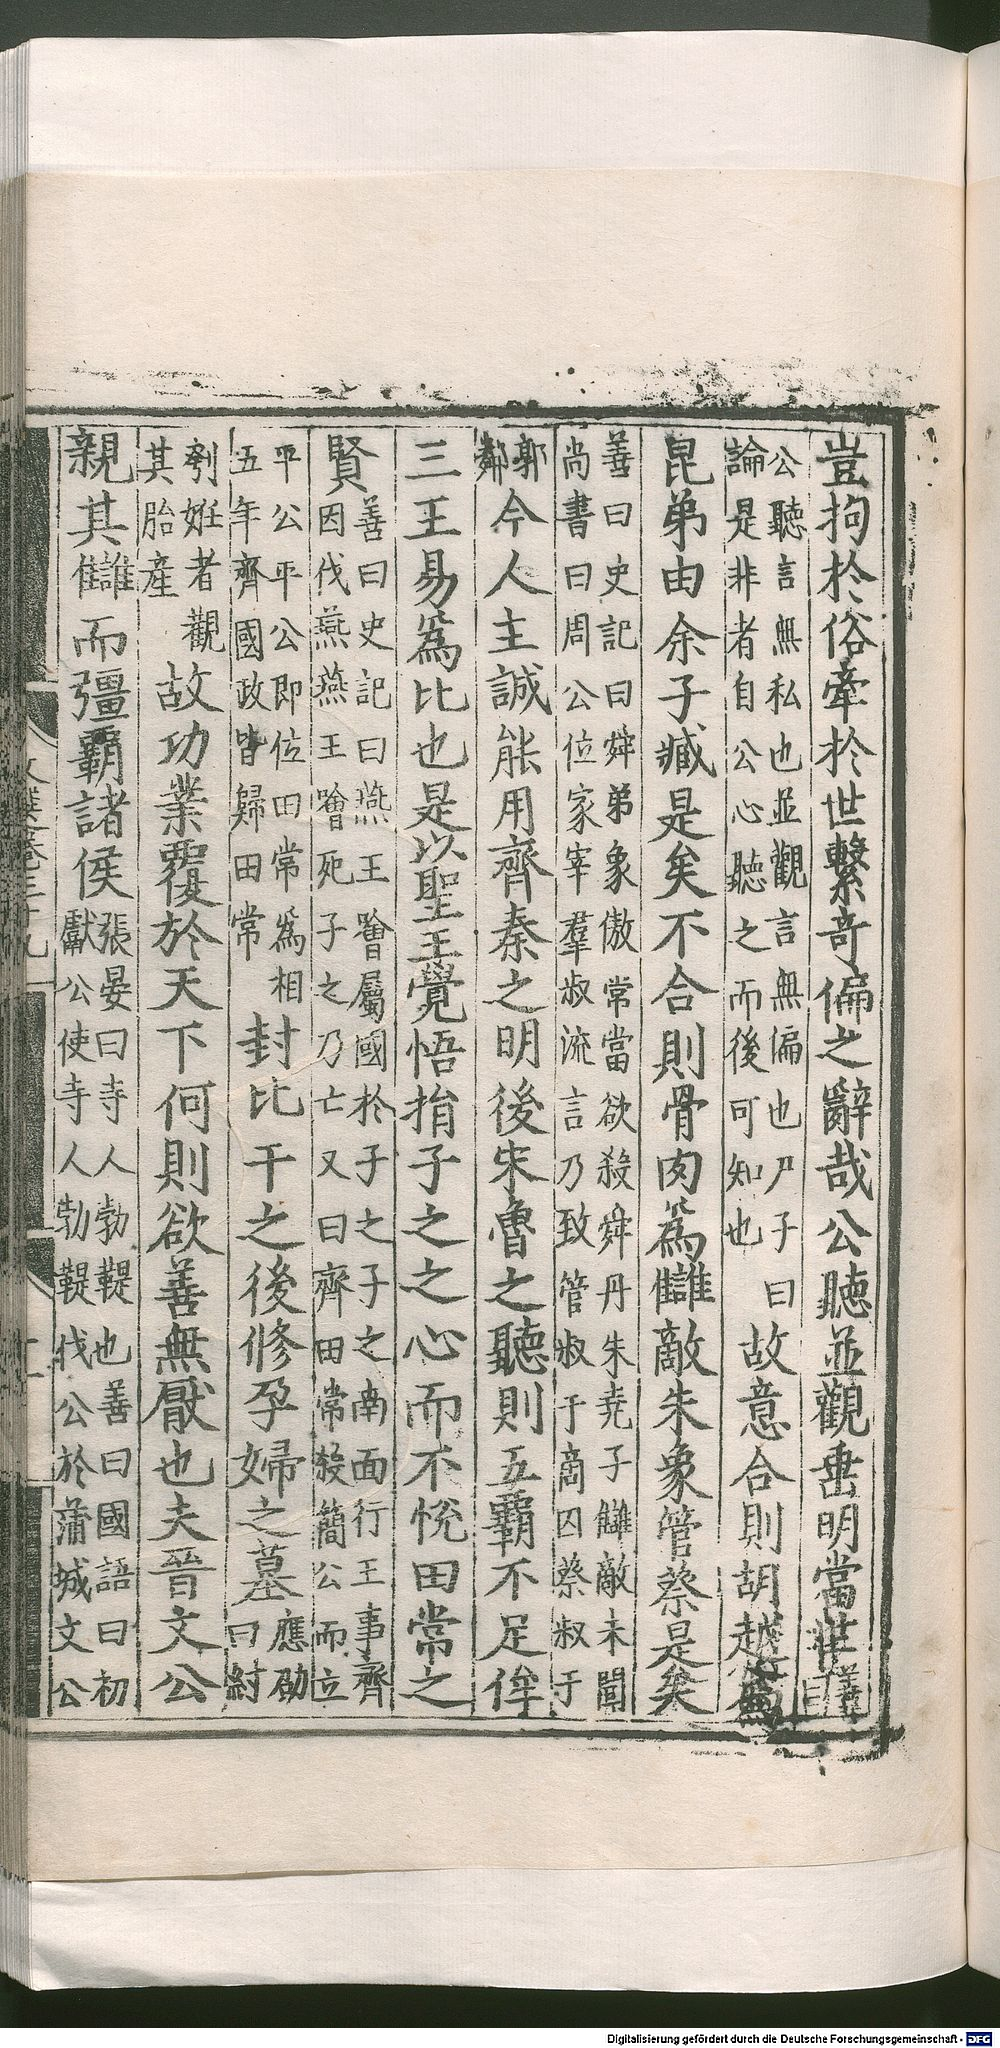 豈拘於俗牽於世繫奇偏之辭哉公聽並觀垂明當世善曰
公聽言無私也並觀言無偏也尸子曰
論是非者自公心聽之而後可知也
故意合則胡越為
昆弟由余子臧是矣不合則骨肉為讎敵朱象管蔡是矣
善曰史記曰舜弟象傲常當欲殺舜丹朱堯子讎敵未聞
尚書曰周公位冢宰羣叔流言乃致管叔于商囚蔡叔于
郭
鄰
今人主誠能用齊秦之明後宋魯之聽則五覇不足侔
三王易為比也是以聖王覺悟捐子之之心而不恱田常之
賢
善曰史記曰燕王噲屬國於子之子之南面行王事齊
因伐燕燕王噲死子之乃亡又曰齊田常殺簡公而立
平公平公即位田常為相
五年齊國政皆歸田常
封比干之後修孕婦之墓
應劭
曰紂
刳妊者觀
其胎產
故功業覆於天下何則欲善無厭也夫晉文公
親其讎而彊覇諸侯
張晏曰寺人勃鞮也善曰國語曰初
獻公使寺人勃鞮伐公於蒲城文公
文選卷三十九
Digitalisierung gefördert durch die Deutsche Forschungsgemeinschaft - DFG